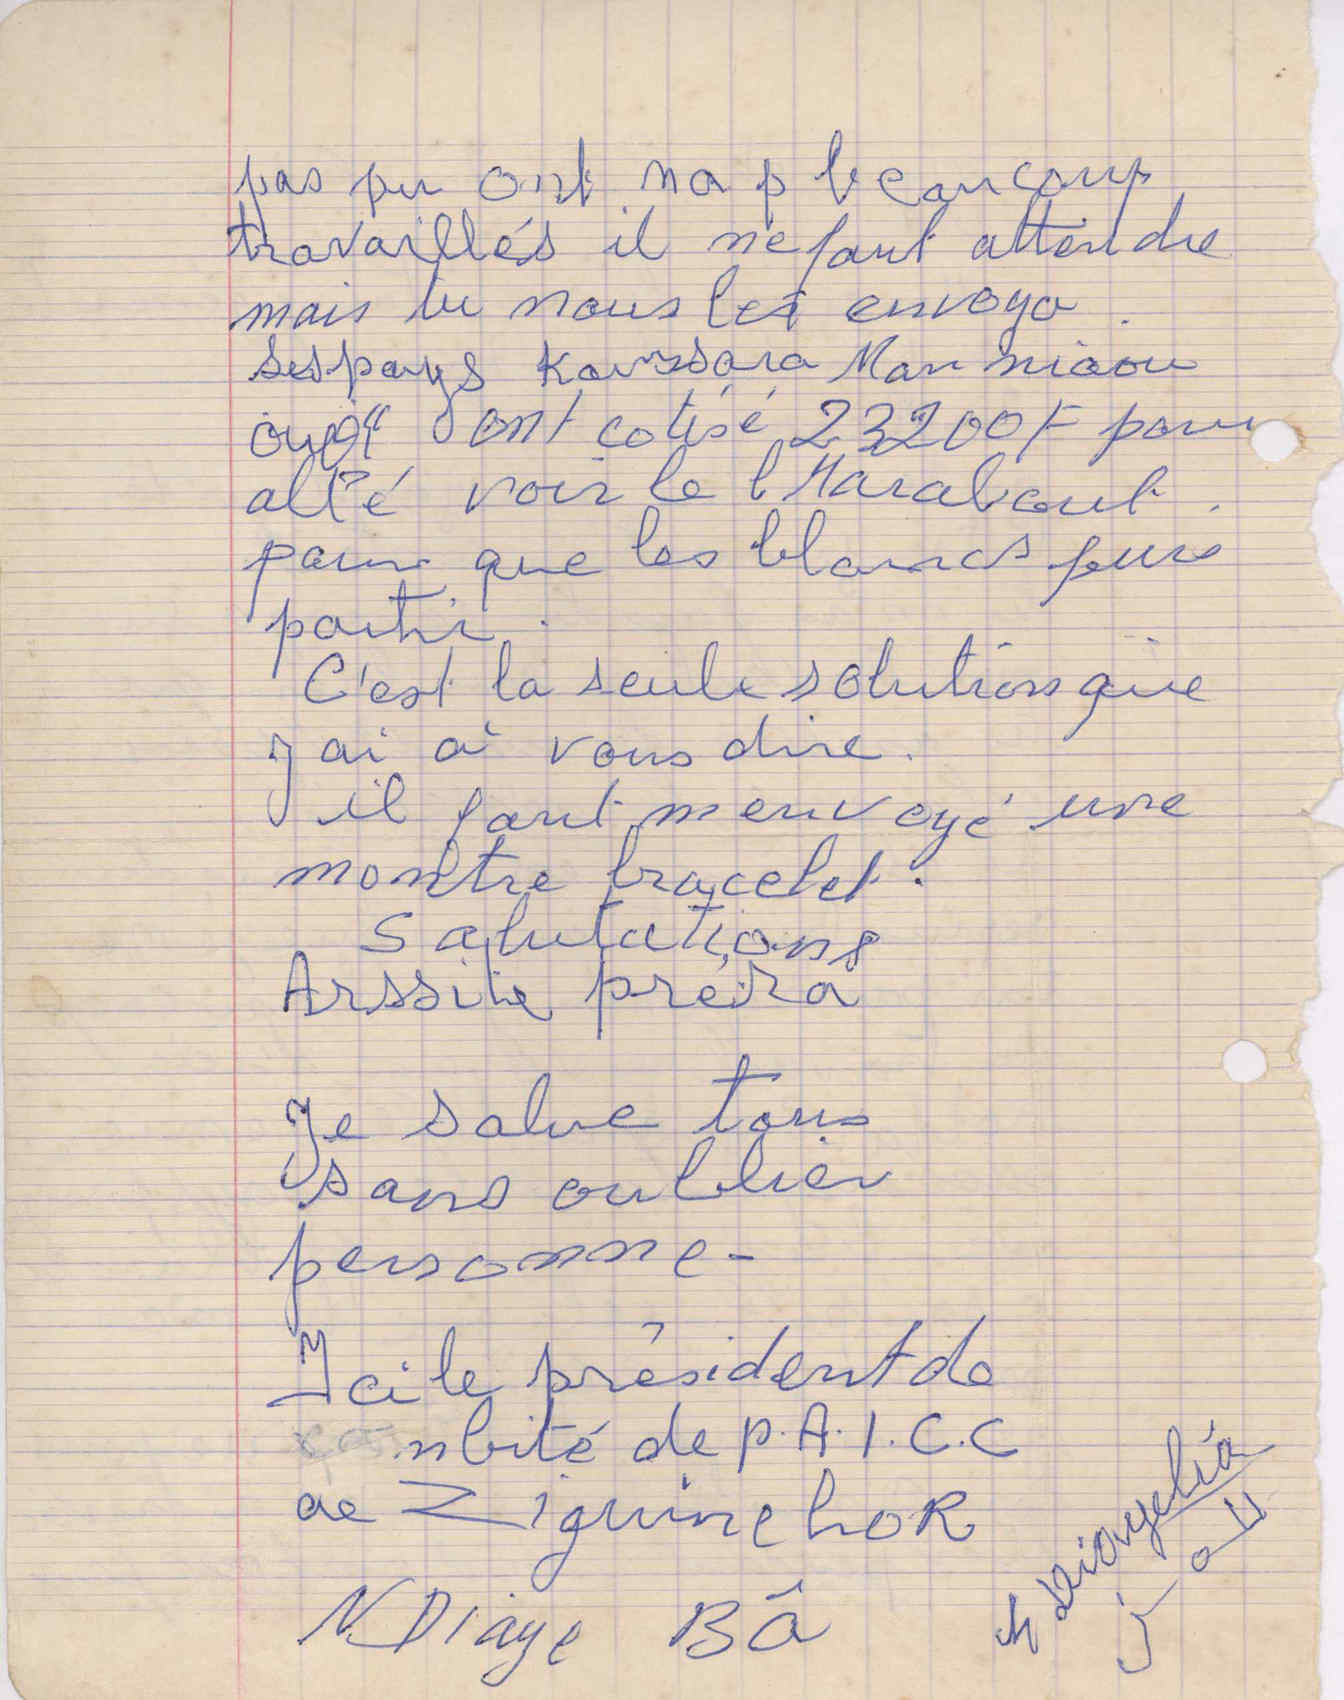 pas pu ont na p beaucoup
travaillés il ne faut attendre
mais tu nous les envoya.
Sespays Koussara Manniaou
ont cotisé 23200F pour
allé voir le Marabout.
pour que les blancs
partir.
C'est la seule solution que
j ai à vous dire.
il faut m envoyé une
montre bracelet.
Salutations
Arssite préira
Je salue tous
sans oublier
personne-
Ici le président de
mbité de P.A.I.C.C
de ZiguinchoR
N.Diaye Bâ